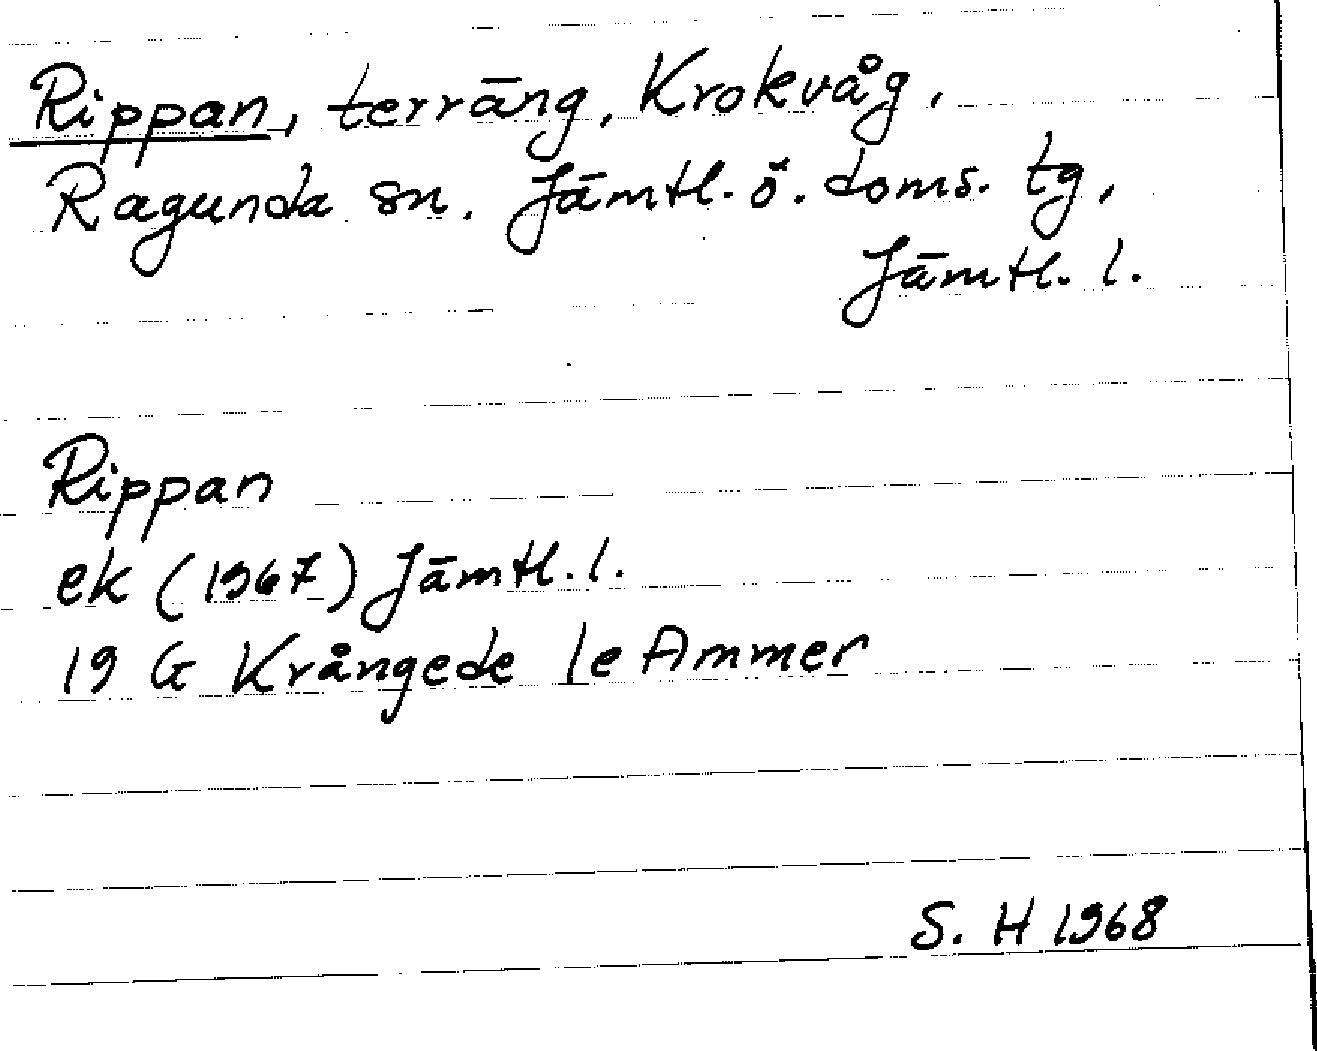 Rippan, terräng, Krokvåg,
Ragunda sn. Jämtl. ö. doms. tg,
Jämtl. l.
Rippan
ek (1967) Jämtl. l.
19 G Krångede 1e Ammer
S. H 1968